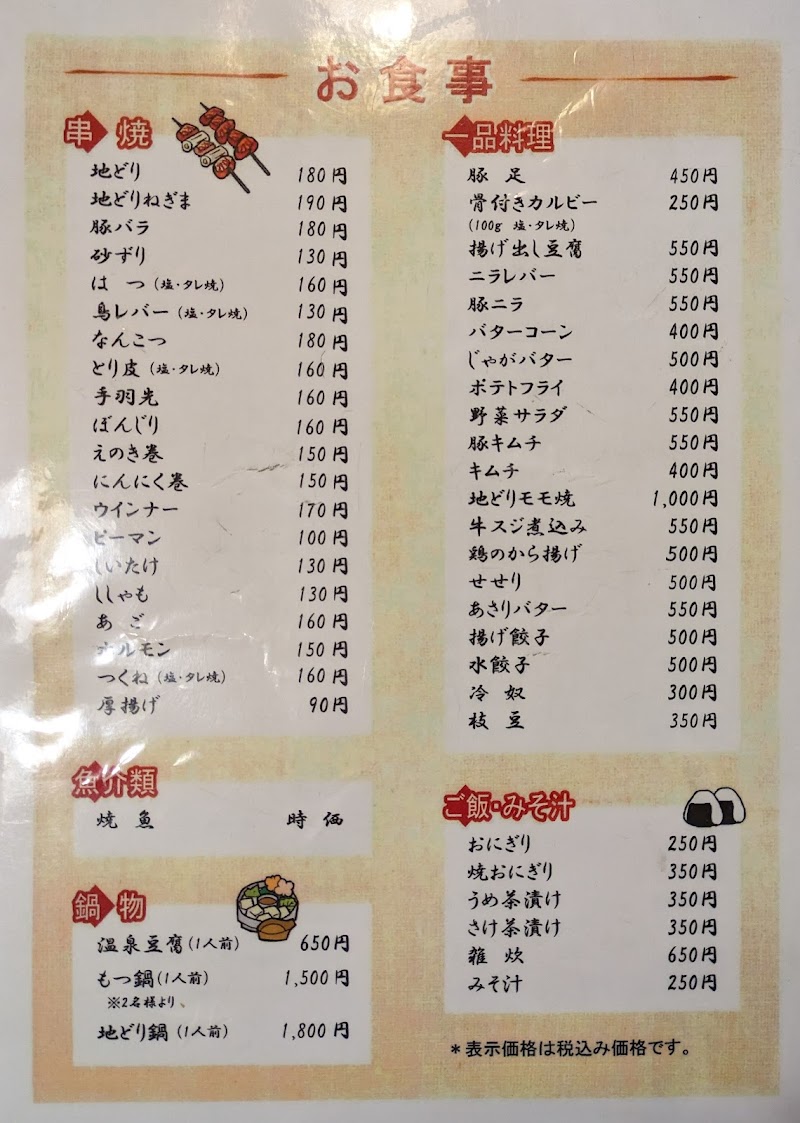 お食事
串焼
地どり 180円
地どりねぎま 190円
豚バラ 180円
砂ずり 130円
はつ(塩・タレ焼) 160円
鳥レバー(塩・タレ焼) 130円
なんこつ 180円
とり皮(塩・タレ焼) 160円
手羽先 160円
ぼんじり 160円
えのき巻 150円
にんにく巻 150円
ウインナー 170円
ピーマン 100円
しいたけ 130円
ししゃも 130円
あご 160円
ホルモン 150円
つくね(塩・タレ焼) 160円
厚揚げ 90円
魚介類
焼魚 時価
鍋物
温泉豆腐(1人前) 650円
もつ鍋(1人前) 1,500円
※2名様より、
地どり鍋(1人前) 1,800円
一品料理
豚足 450円
骨付きカルビー 250円
(100g 塩・タレ焼)
揚げ出し豆腐 550円
ニラレバー 550円
豚ニラ 550円
バターコーン 400円
じゃがバター 500円
ポテトフライ 400円
野菜サラダ 550円
豚キムチ 550円
キムチ 400円
地どりモモ焼 1,000円
牛スジ煮込み 550円
鶏のから揚げ 500円
せせり 500円
あさりバター 550円
揚げ餃子 500円
水餃子 500円
冷奴 300円
枝豆 350円
ご飯・みそ汁
おにぎり 250円
焼おにぎり 350円
うめ茶漬け 350円
さけ茶漬け 350円
雑炊 650円
みそ汁 250円
＊表示価格は税込み価格です。